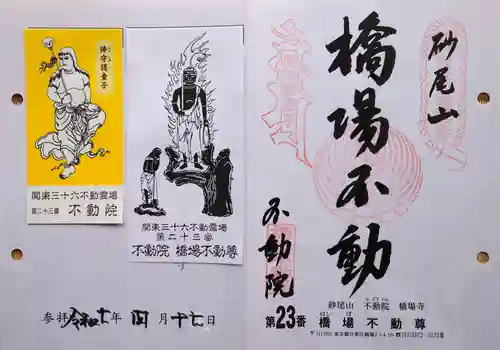 倶守護童子
関東三十六不動霊場
第二十三番 不動院
関東三十六不動霊場
第二十三番
不動院 橋場不動尊
参拝 令和七年 四月 十七日
砂尾山
橋場不動
不動院
砂尾山 不動院 橋場寺
第23番 橋場不動尊